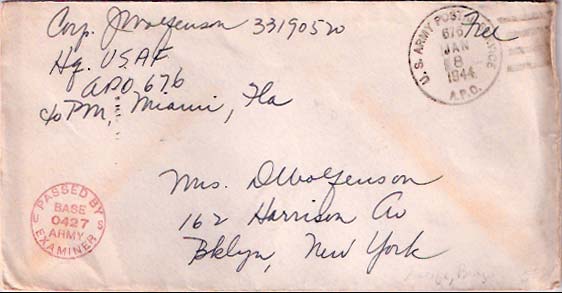 Corp. J Wolfenson 33190520
Hq. USAF
APO 676
c/o PM, Miami, Fla
U.S. ARMY POSTAL SERVICE
676
JAN
8
1944
A.P.O.
Free
PASSED BY
BASE
0427
ARMY
EXAMINER
U S
Mrs. D Wolfenson
162 Harrison Av
Bklyn, New York